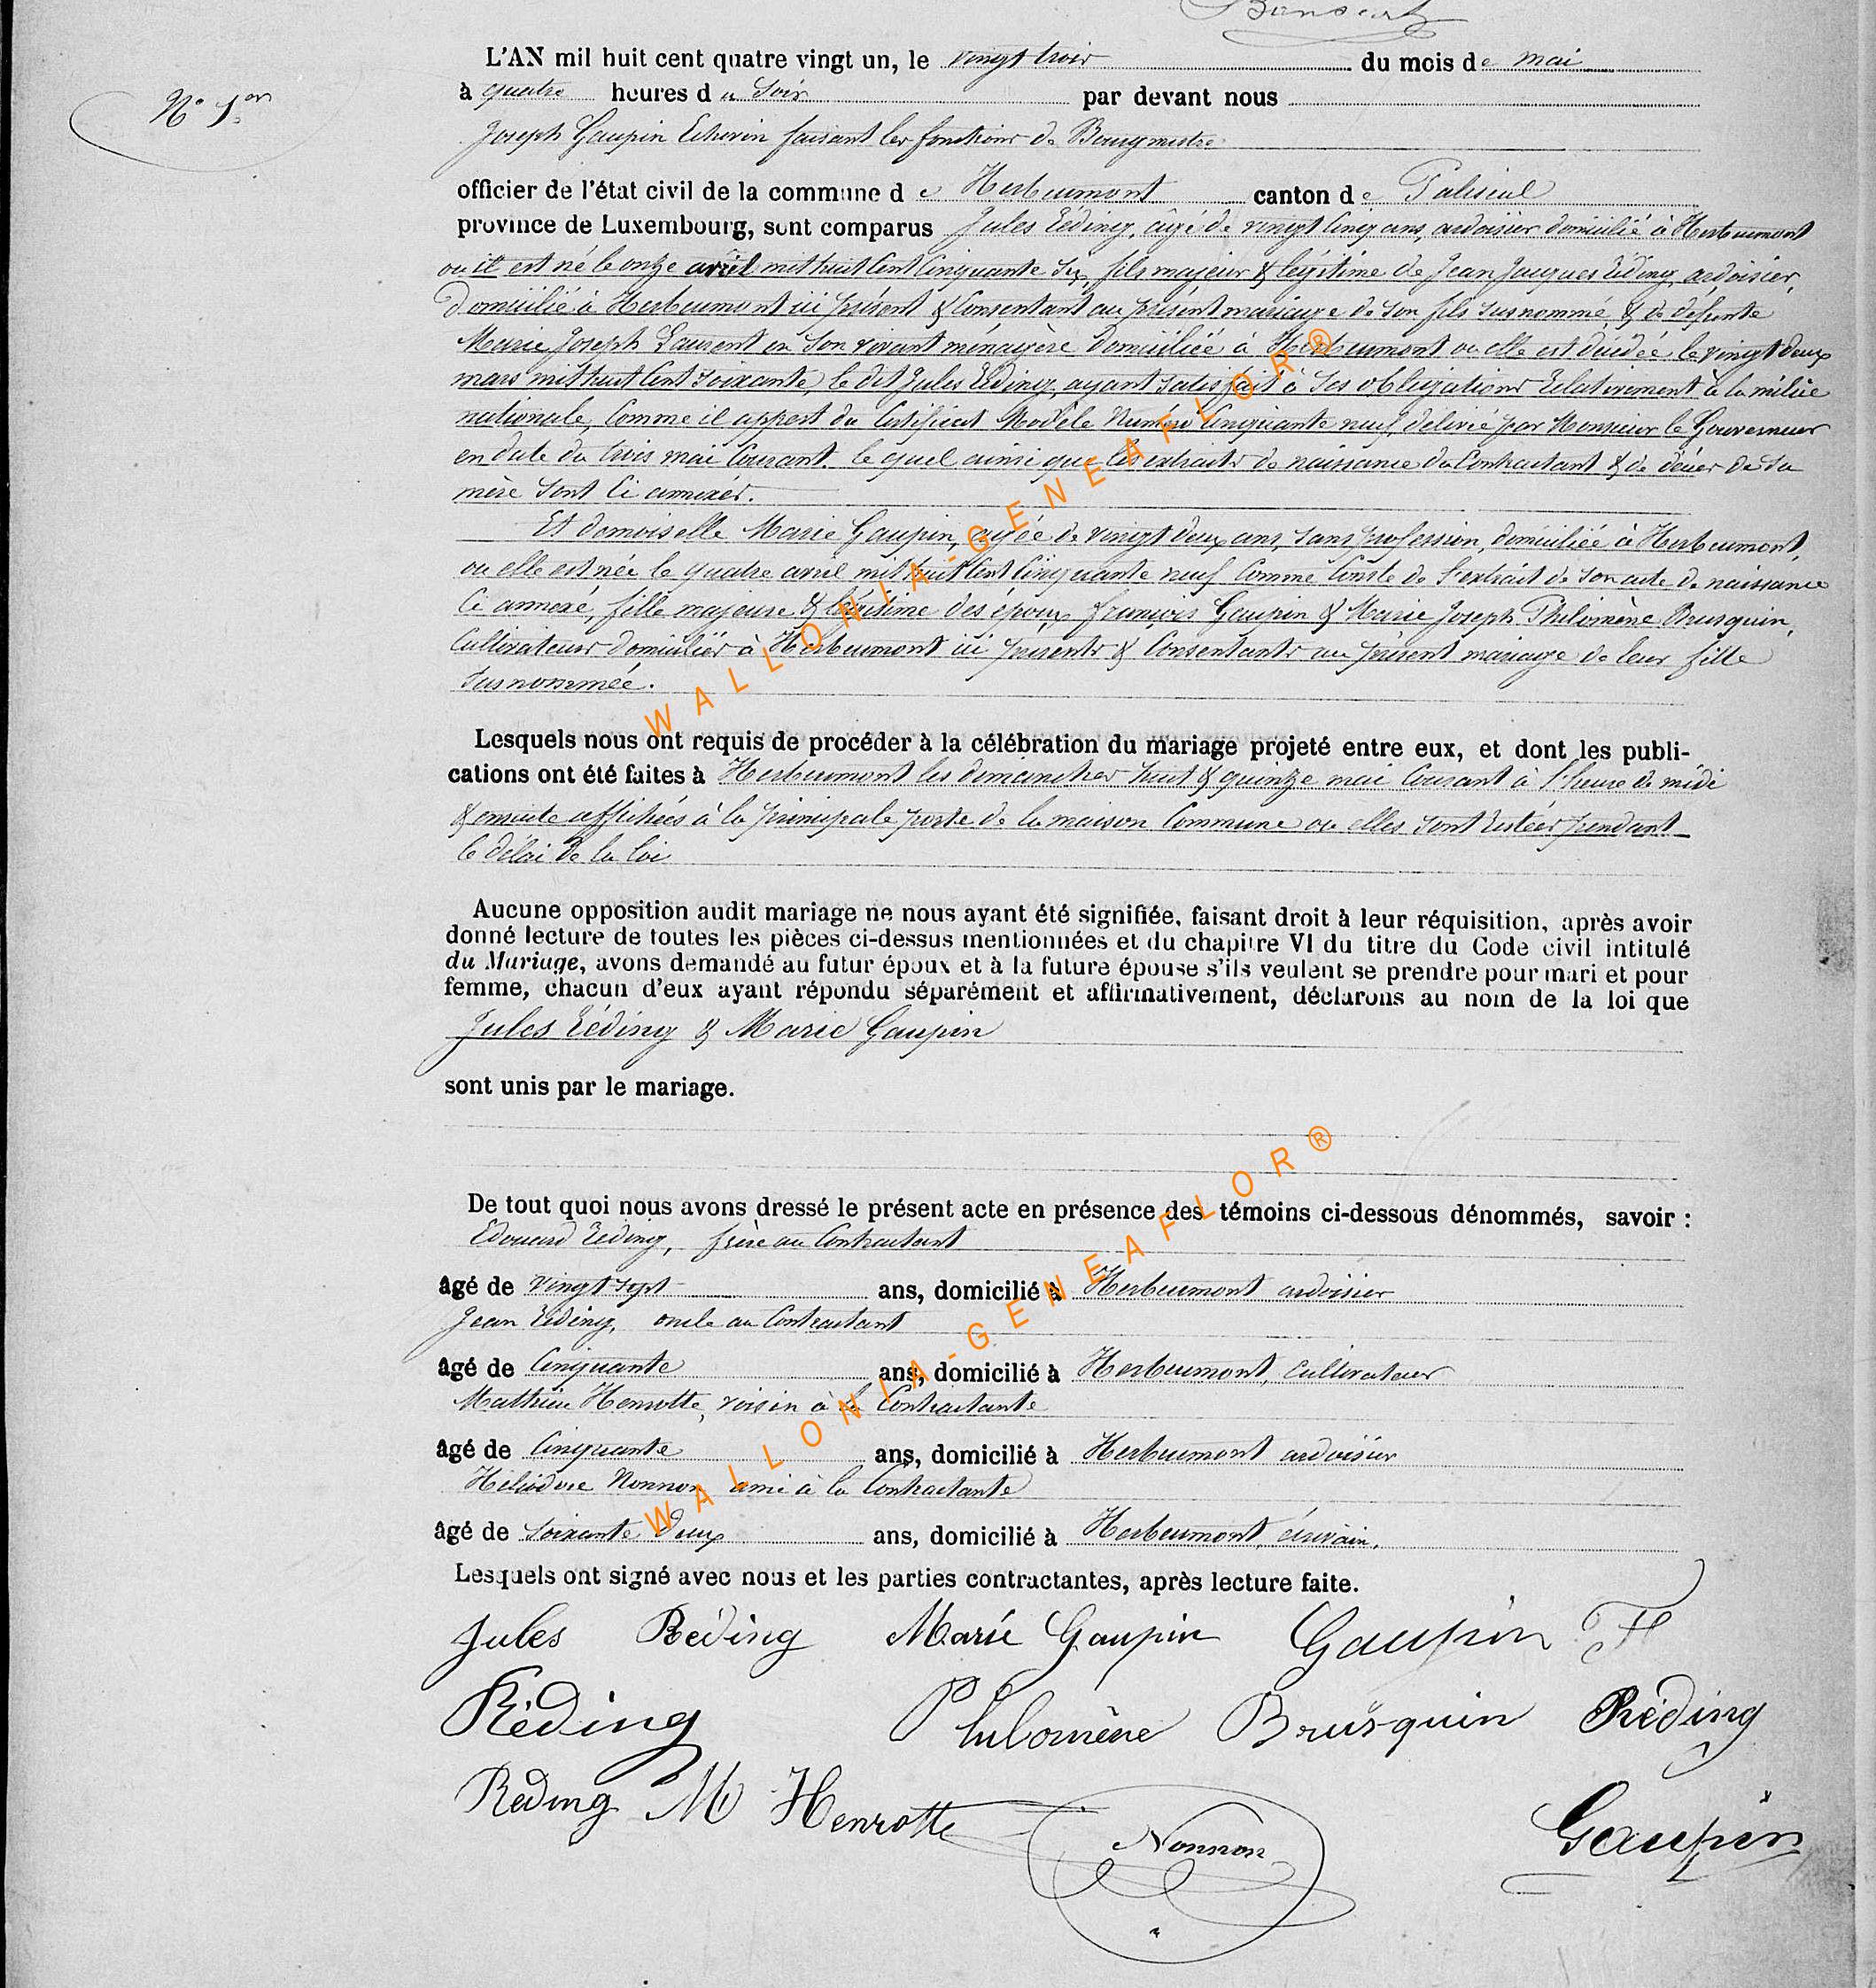 L'AN mil huit cent quatre vingt un, le vingt trois du mois de mai
N° 1er
à quatre heures du Soir par devant nous
Joseph Gaupin Echevin faisant les fonctions de Bourgmestre
officier de l'état civil de la commune de Herbeumont canton de Paliseul
province de Luxembourg, sont comparus Jules Réding, âgé de vingt cinq ans, ardoisier domicilié à Herbeumont
ou il est né le onze avril mil huit cent cinquante six, fils majeur & légitime de Jean Jacques Réding, ardoisier,
domicilié à Herbeumont ici présent & consentant au présent mariage de son fils susnommé, & de défunte
Marie Joseph Laurent en son vivant ménagère domiciliée à Herbeumont ou elle est décédée le vingt deux
mars mil huit cent soixante, le dit Jules Réding, ayant satisfait à ses obligations relativement à la milice
nationale, comme il appert du certificat modèle numéro cinquante neuf, délivré par Monsieur le Gouverneur
en date du trois mai courant. le quel ainsi que les extraits de naissance du contractant & de décès de sa
mère sont ci annexés.
Et demoiselle Marie Gaupin, agée de vingt deux ans, sans profession, domiciliée à Herbeumont,
ou elle est née le quatre avril mil huit cent cinquante neuf comme conste de l'extrait de son acte de naissance
ci annexé, fille majeure & légitime des époux françois Gaupin & Marie Joseph Philomène Brusquin,
cultivateurs domiciliés à Herbeumont ici présents & consentants au présent mariage de leur fille
susnommée.
Lesquels nous ont requis de procéder à la célébration du mariage projeté entre eux, et dont les publi-
cations ont été faites à Herbeumont les dimanches huit & quinze mai courant à l'heure de midi
& ensuite affichées à la principale porte de la maison commune ou elles sont restées pendant
le délai de la loi
Aucune opposition audit mariage ne nous ayant été signifiée, faisant droit à leur réquisition, après avoir
donné lecture de toutes les pièces ci-dessus mentionnées et du chapitre VI du titre du Code civil intitulé
du Mariage, avons demandé au futur époux et à la future épouse s'ils veulent se prendre pour mari et pour
femme, chacun d'eux ayant répondu séparément et affirmativement, déclarons au nom de la loi que
Jules Réding & Marie Gaupin
sont unis par le mariage.
De tout quoi nous avons dressé le présent acte en présence des témoins ci-dessous dénommés, savoir :
Edouard Réding, frère au contractant
âgé de vingt sept ans, domicilié à Herbeumont ardoisier
Jean Réding, oncle au contractant
âgé de cinquante ans, domicilié à Herbeumont, cultivateur
Mathieu Henrotte, voisin à la contractante
âgé de cinquante ans, domicilié à Herbeumont ardoisier
Héliodore Nonnon ami à la contractante
âgé de soixante deux ans, domicilié à Herbeumont, écrivain,
Lesquels ont signé avec nous et les parties contractantes, après lecture faite.
Jules Réding Marie Gaupin Gaupin F
Réding Philomène Brusquin Réding
Reding M Henrotte Nonnon Gaupin
WALLONIA-GENEAFLOR®
WALLONIA-GENEAFLOR®